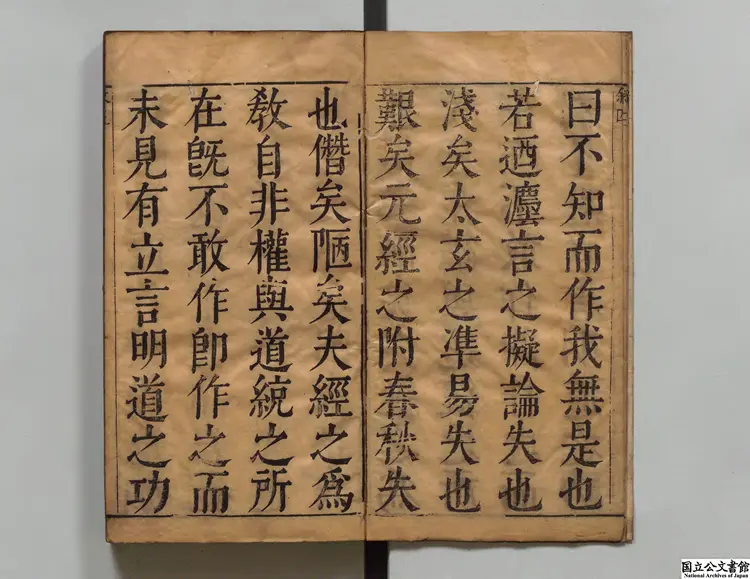 曰不知而作我無是也
若迺灋言之擬論失也
淺矣太玄之凖易失也
艱矣元經之附春秋失
也僭矣陋矣夫經之爲
敎自非權輿道統之所
在旣不敢作卽作之而
未見有立言明道之功
国立公文書館
National Archives of Japan